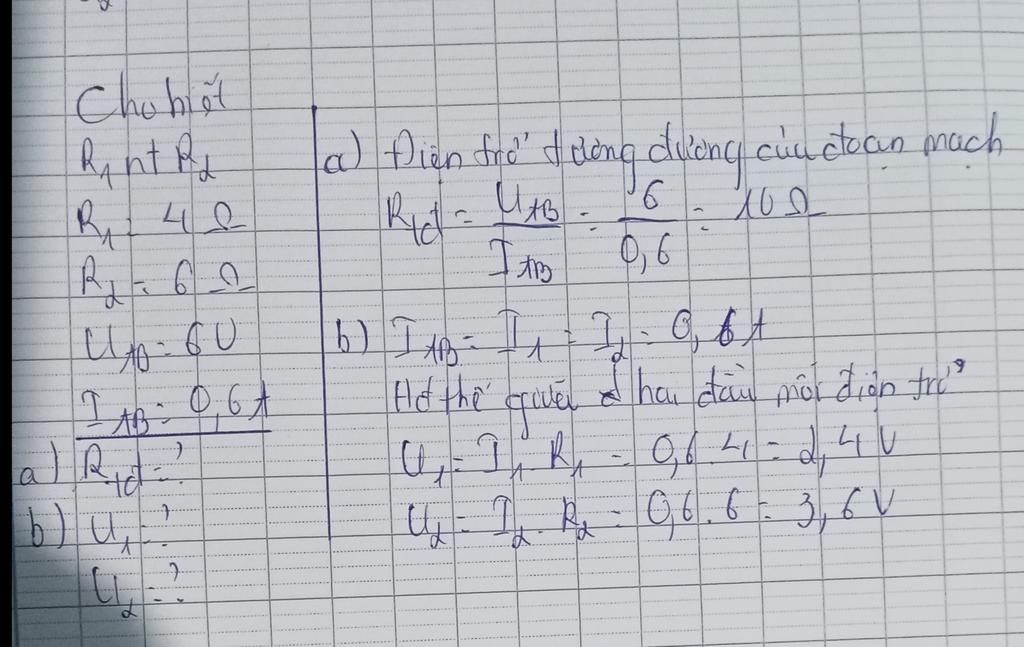 Cho biết
R₁ nt R₂
R₁ = 4 Ω
R₂ = 6 Ω
U_AB = 6V
I_AB = 0,6A
a) R_tđ = ?
b) U₁ = ?
U₂ = ?
a) Điện trở tương đương của đoạn mạch
R_tđ = U_AB / I_AB = 6 / 0,6 = 10 Ω
b) I_AB = I₁ = I₂ = 0,6 A
Hđ thế giữa hai đầu mỗi điện trở
U₁ = I₁ . R₁ = 0,6 . 4 = 2,4 V
U₂ = I₂ . R₂ = 0,6 . 6 = 3,6 V